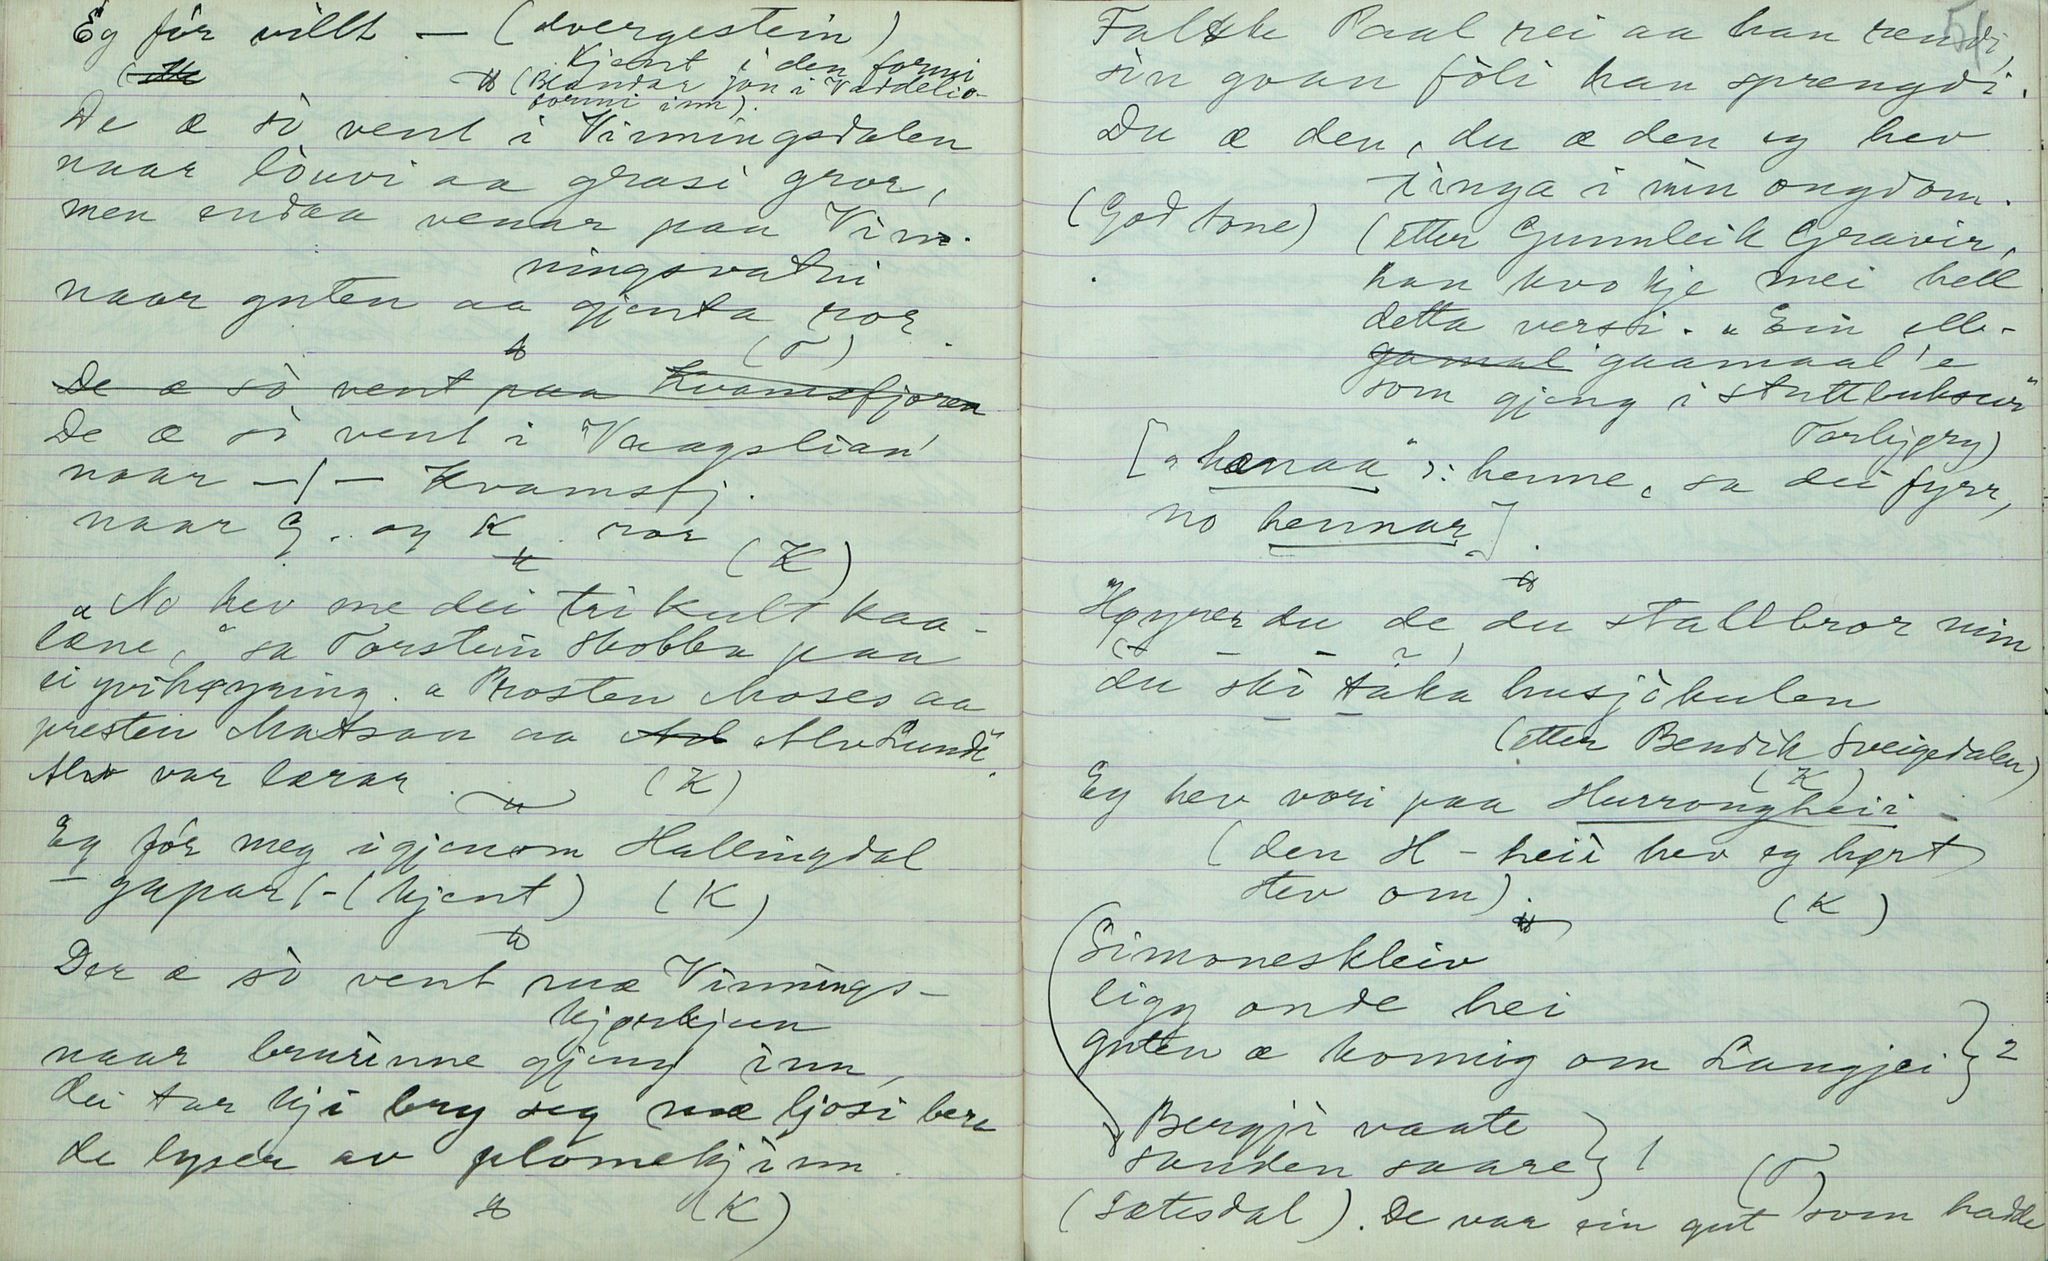 Eg fór villt — (dvergestein)
kjent i den formi
(Blandar jon i Vaddelio-
formi inn).
De æ sò vent i Vinningsdalen
naar lòuvi aa grasi gror,
men endaa venar paa Vin-
ningsvatni
naar guten aa gjenta ror.
(T)
De æ sò vent paa Kvamsfjoren
De æ sò vent i Vaagslian'
naar —/— Kvamsfj.
naar G. og K. ror
(K)
"No hev me dei tri kult kaa-
lane," sa Torstein Skobba paa
ei yvihøyring. "Prosten Moses aa
presten Matson aa Alv Lunde".
Alv var lærar. (K)
Eg fór meg igjenom Hallingdal
gapar (-(kjent) (K)
Der æ sò vent mæ Vinnings-
kjørkjun
naar brurinne gjeng inn,
dei tar kji bry seg mæ ljosi bera
de lyser av plomekjinn.
(K)
51
Falske Paal rei aa han rendi,
sin goan fòli han sprengdi.
Du æ den, du æ den eg hev
tinga i min ongdom.
(God tone) (etter Gunnleik Gravir,
han kvo kje mei hell
detta versi. "Ein elle-
gamal gaamaal'e
som gjeng i stuttbuksur"
Torbjørg)
["hænaa" ɔ: henne, sa dei fyrr,
no hennar].
Høyrer du de du stallbror min
du ski taka husjòkulen
(etter Bendik Sveigdalen)
(K)
Eg hev vori paa Hurrongheii
(den H-heii hev eg hørt
stev om). (K)
Simoneskleiv
ligg onde hei
guten æ komig om Langjei } 2
Bergji vaate
sanden saare } 1
(T)
(Sætesdal). De var ein gut som hadde